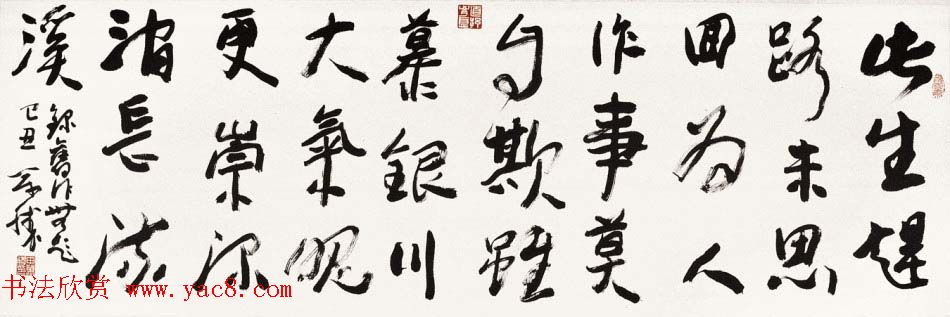 此生趕
路未思
回为人
作事莫
自欺雖
慕銀川
大氣魄
更崇深
涓長流
溪
錄舊作
己丑
书法欣赏 www.yac8.com